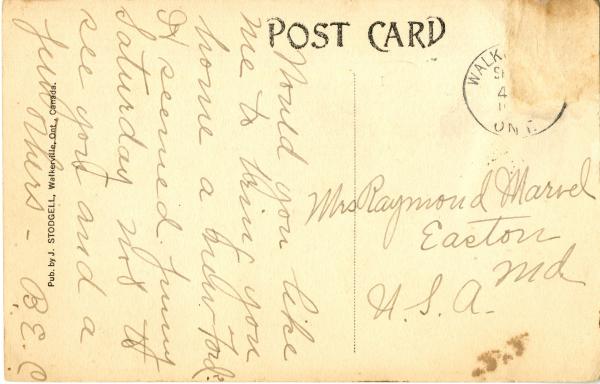 POST CARD
WALK
S
4
ONT.
Would you like
me to bring you
home a new Ford?
It seemed funny
Saturday not to
see you and a
few others - B.E.C
Mrs Raymond Marvel
Easton
Md
U.S.A.
Pub. by J. STODGELL, Walkerville, Ont., Canada.